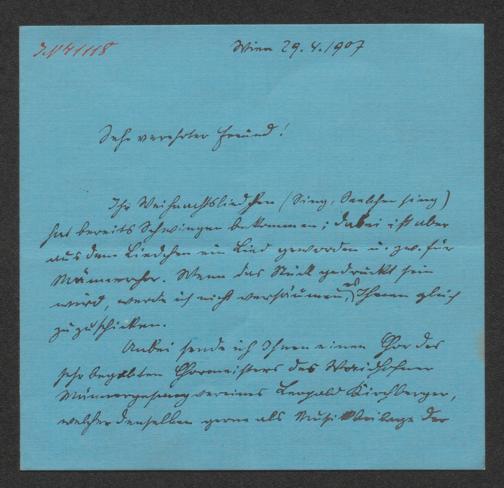 I.N. 41118
Wien 29.4.1907
Sehr verehrter Freund!
Ihr Weihnachtsliedchen (Sing, Seelchen sing)
hat bereits Schwingen bekommen; dabei ist aber
aus dem Liedchen ein Lied geworden u. zw. für
Männerchor. Wenn das Stück gedruckt sein
wird, werde ich nicht versäumen, es Ihnen gleich
zuzuschicken.
Anbei sende ich Ihnen einen Chor des
sehr begabten Chormeisters des Waidhofner
Männergesangvereins Leopold Kirchberger,
welcher denselben gerne als Musikbeilage der